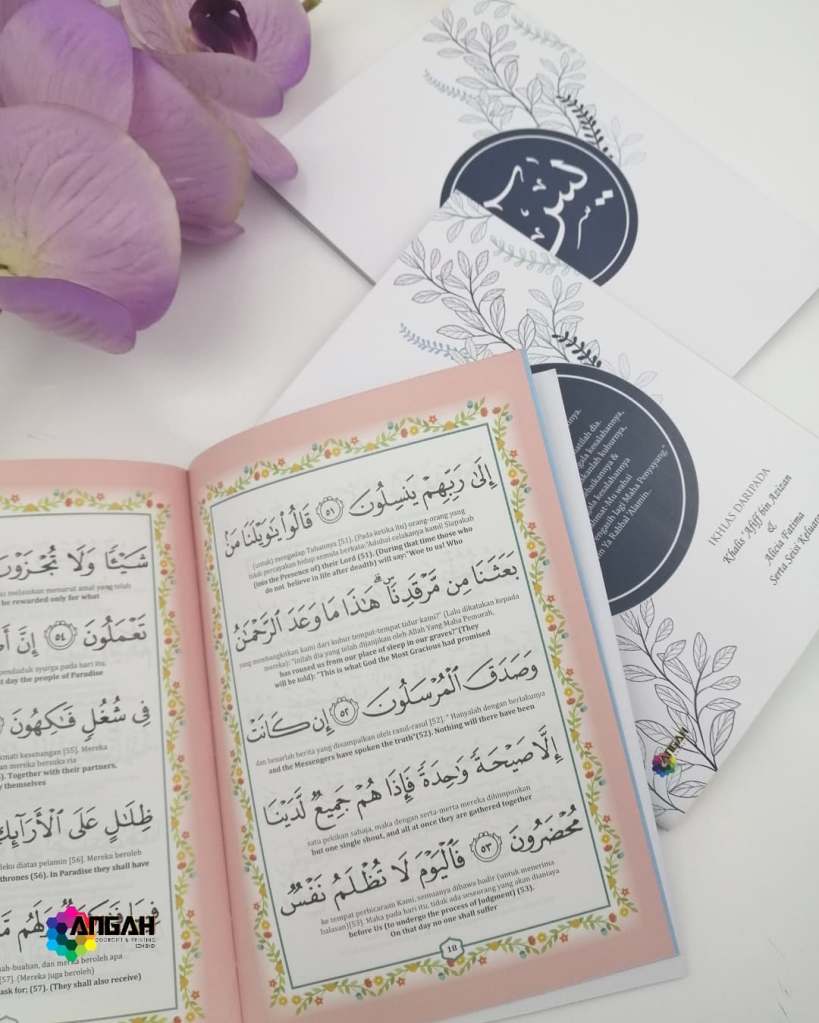 يس
ﻧﻴﺎ.
atilah dia.
gala kesalahannya,
kanlah kuburnya,
baikannya &
kesalahannya
limat-Mu wahai
engasih lagi Maha Penyayang."
n Ya Rabbal 'Alamin..
IKHLAS DARIPADA
Khalis 'Afiff bin Azizan
&
Alicia Fatima
Serta Seisi Keluar
ANGAH
إِلَىٰ رَبِّهِمْ يَنسِلُونَ ٥١ قَالُوا۟ يَـٰوَيْلَنَا مَنۢ
(untuk) mengadap Tuhannya [51]. (Pada ketika itu) orang-orang yang
tidak percayakan hidup semula berkata:"Aduhai celakanya kami! Siapakah
(into the Presence of) their Lord (51). (During that time those who
do not believe in life after death) will say:"Woe to us! Who
بَعَثَنَا مِن مَّرْقَدِنَا ۜ ۗ هَـٰذَا مَا وَعَدَ ٱلرَّحْمَـٰنُ
yang membangkitkan kami dari kubur tempat-tempat tidur kami?" (Lalu dikatakan kepada
mereka): "Inilah dia yang telah dijanjikan oleh Allah Yang Maha Pemurah,
has roused us from our place of sleep in our graves?"(They
will be told): "This is what God the Most Gracious had promised
وَصَدَقَ ٱلْمُرْسَلُونَ ٥٢ إِن كَانَتْ
dan benarlah berita yang disampaikan oleh rasul-rasul [52]." Hanyalah dengan berlakunya
and the Messengers have spoken the truth"(52). Nothing will there have been
إِلَّا صَيْحَةً وَٰحِدَةً فَإِذَا هُمْ جَمِيعٌ لَّدَيْنَا
satu pekikan sahaja, maka dengan serta-merta mereka dihimpunkan
but one single shout, and all at once they are gathered together
مُحْضَرُونَ ٥٣ فَٱلْيَوْمَ لَا تُظْلَمُ نَفْسٌ
ke tempat perbicaraan Kami, semuanya dibawa hadir (untuk menerima
balasan)[53]. Maka pada hari itu, tidak ada seseorang yang akan dianiaya
before Us (to undergo the process of judgment) (53).
On that day no one shall suffer
18
شَيْـًٔا وَلَا تُجْزَوْنَ
as melainkan menurut amal yang telah
be rewarded only for what
تَعْمَلُونَ ٥٤ إِنَّ
penduduk syurga pada hari itu,
t day the people of Paradise
فِى شُغُلٍ فَـٰكِهُونَ
kmati kesenangan [55]. Mereka
an mereka bersuka ria
). Together with their partners.
y themselves
ظِلَـٰلٍ عَلَى ٱلْأَرَآئِكِ
leku diatas pelamin [56]. Mereka beroleh
thrones (56). in Paradise they shall have
وَلَهُم
ah-buahan, dan mereka beroleh apa
[57]. (Mereka juga beroleh)
ask for; (57). (They shall also receive)
ANGAH
CONCEPT & PRINTING